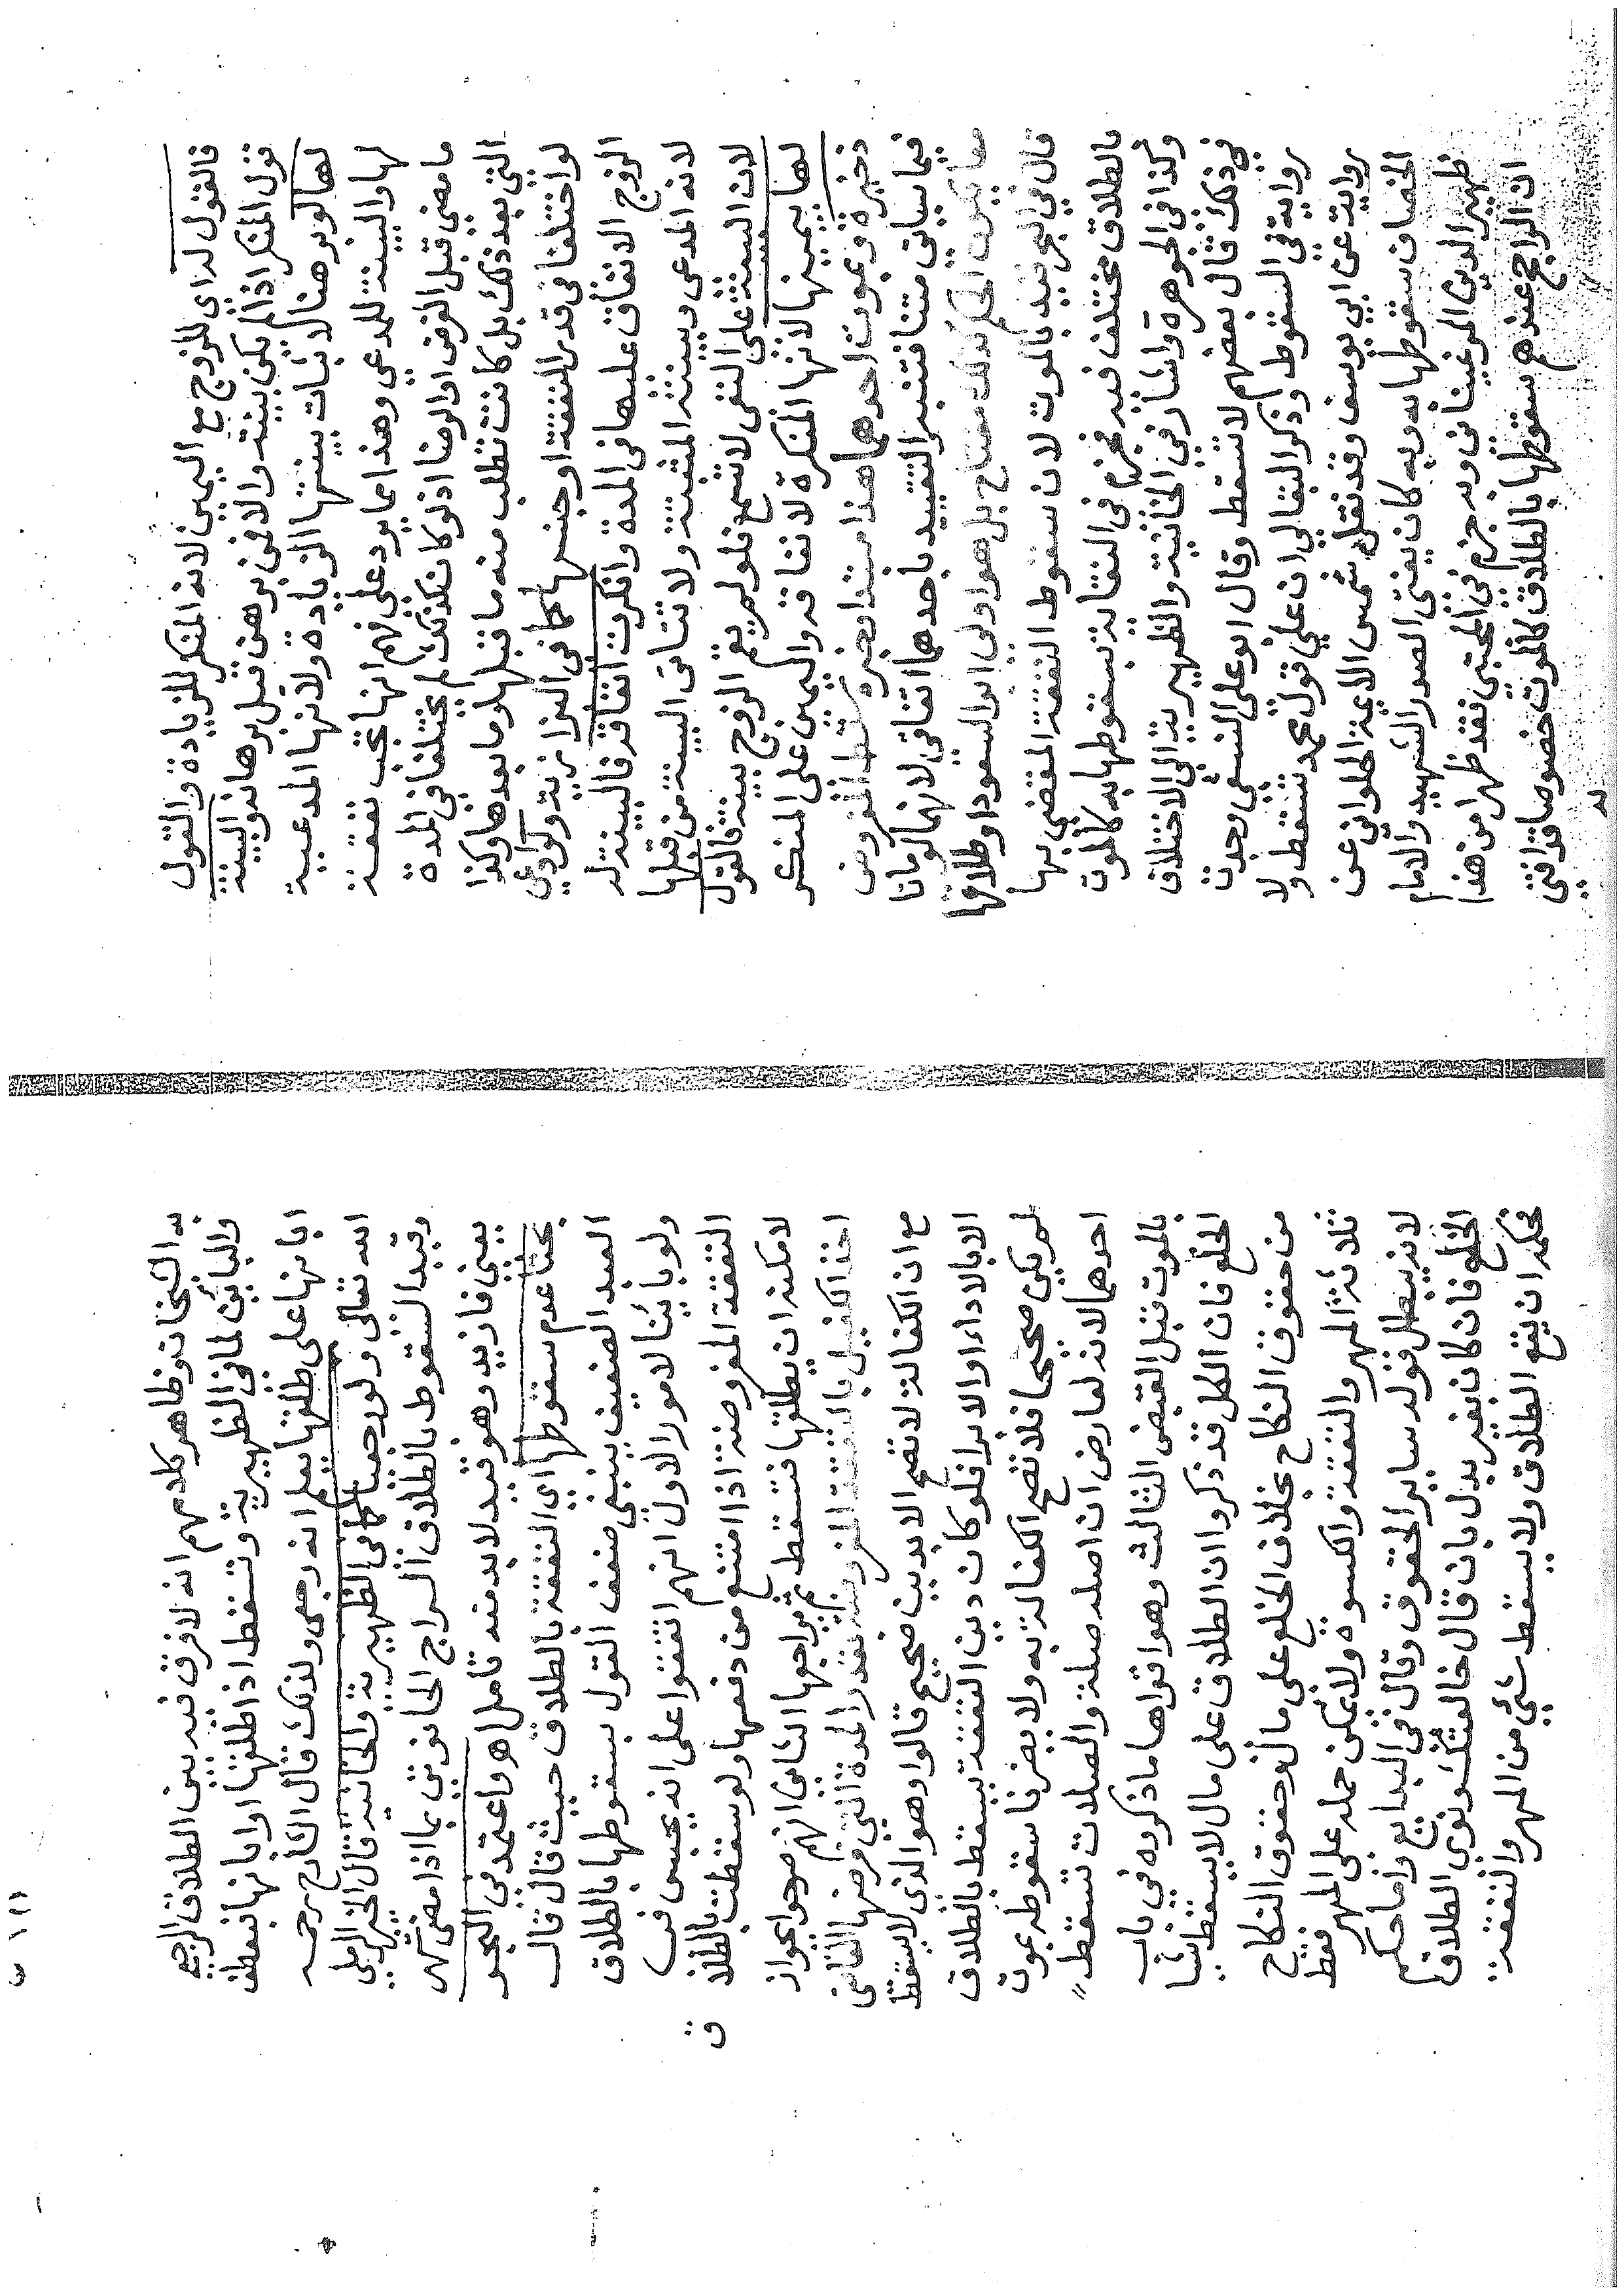 فالقول له اي للزوج مع اليمين لانه المنكر للزيادة والقول
قول المنكر اذا لم يكن بينة والا فمن برهن قبل برهانه والبينة
لها لو برهنا لاثبات بينتها الزيادة ولانها المدعية
لها والبينة للمدعي وهذا مما يرد على فهم انها تجب نفقة
ما مضى قبل الفرض او الرضا اذ لو كان كذلك لم يختلفا في المدة
التي بعد ذلك بل كانت تطلب منه ما قبلها وما بعدها وكذا
لو اختلفا في قدر النفقة او جنسها كما في البزازية ولو ادعى
الزوج الانفاق عليها في المدة وانكرت انفاقه فالبينة له
لانه المدعي وبينته المثبتة ولا تتاتى البينة من قبلها
لان البينة على النفي لا تسمع فلو لم يقم الزوج بينة فالقول
لها بيمينها لانها المنكرة لانفاقه واليمين على المنكر
ذخيرة وبموت احدهما هذا مبتدا وخبره تسقط المفروض
فيما سياتي متنا فتنبه والتقييد باحدهما اتفاقي لانهما لو ماتا
معا يكون الحكم كذلك من باب اولى ابو السعود او طلاقها
قال في البحر قيد بالموت لان سقوط النفقة المقضي بها
بالطلاق مختلف فيه فجزم في النقاية بسقوطها به كالموت
وكذا في الجوهرة واشار في الخانية والظهيرية الى الاختلاف
في ذلك قال بعضهم لا تسقط وقال ابو علي النسفي وجدت
رواية في السقوط وذكر البقالي ان على قول محمد تسقط ولا
رواية عن ابي يوسف وقد نقل شمس الائمة الحلواني عن
الخصاف سقوطها به وبه كان يفتي الصدر الشهيد والامام
ظهير الدين المرغيناني وبه جزم في المجتبى فقد ظهر من هذا
ان الراجح عندهم سقوطها بالطلاق كالموت خصوصا قد افتى
به
به الشيخان وظاهر كلامهم انه لا فرق فيه بين الطلاق الرجعي
والبائن لما في الظهيرية وتسقط اذا طلقها او ابانها فعطف
ابانها على طلقها يعلم انه رجعي ولذلك قال الشارح رحمه
الله تعالى ولو رجعيا كما في الظهيرية والخانية قال الخير الرملي
وقيد السقوط بالطلاق السراج الحانوتي بما اذا مضى شهر
يعني فازيد وهو قيد لا بد منه تامل اهـ واعتمد في البحر
بحثا عدم سقوطها اي النفقة بالطلاق حيث قال قال
العبد الضعيف ينبغي ضعف القول بسقوطها بالطلاق
ولو بائنا لامور الاول انهم اتفقوا على انه يحبس في
النفقة المفروضة اذا امتنع من دفعها ولو سقطت بالطلا
ق
لامكنه ان يطلقها فتسقط ثم يراجعها الثاني انهم صرحوا بجواز
اخذ الكفيل بالنفقة المفروضة بقدر المدة التي فرضها القاضي
مع ان الكفالة لا تصح الا بدين صحيح قالوا وهو الذي لا يسقط
الا بالاداء او الابراء فلو كان دين النفقة يسقط بالطلاق
لم يكن صحيحا فلا تصح الكفالة به ولا يضرنا سقوطه بموت
احدهما لانه لعارض ان اصله صلة والصلات تسقط
بالموت قبل القبض الثالث وهو اقواها ما ذكروه في باب
الخلع فان الكل قد ذكروا ان الطلاق على مال لا يسقط شيئا
من حقوق النكاح بخلاف الخلع على مال فحقوق النكاح
ثلاثة المهر والنفقة والكسوة ولا يمكن حمله على المهر فقط
لانه يبطل قوله سائر الحقوق وقال في البدايع واما حكم
الخلع فان كان بغير بدل بان قال خالعتك ونوى الطلاق
فحكمه ان يقع الطلاق ولا يسقط شيئ من المهر والنفقة